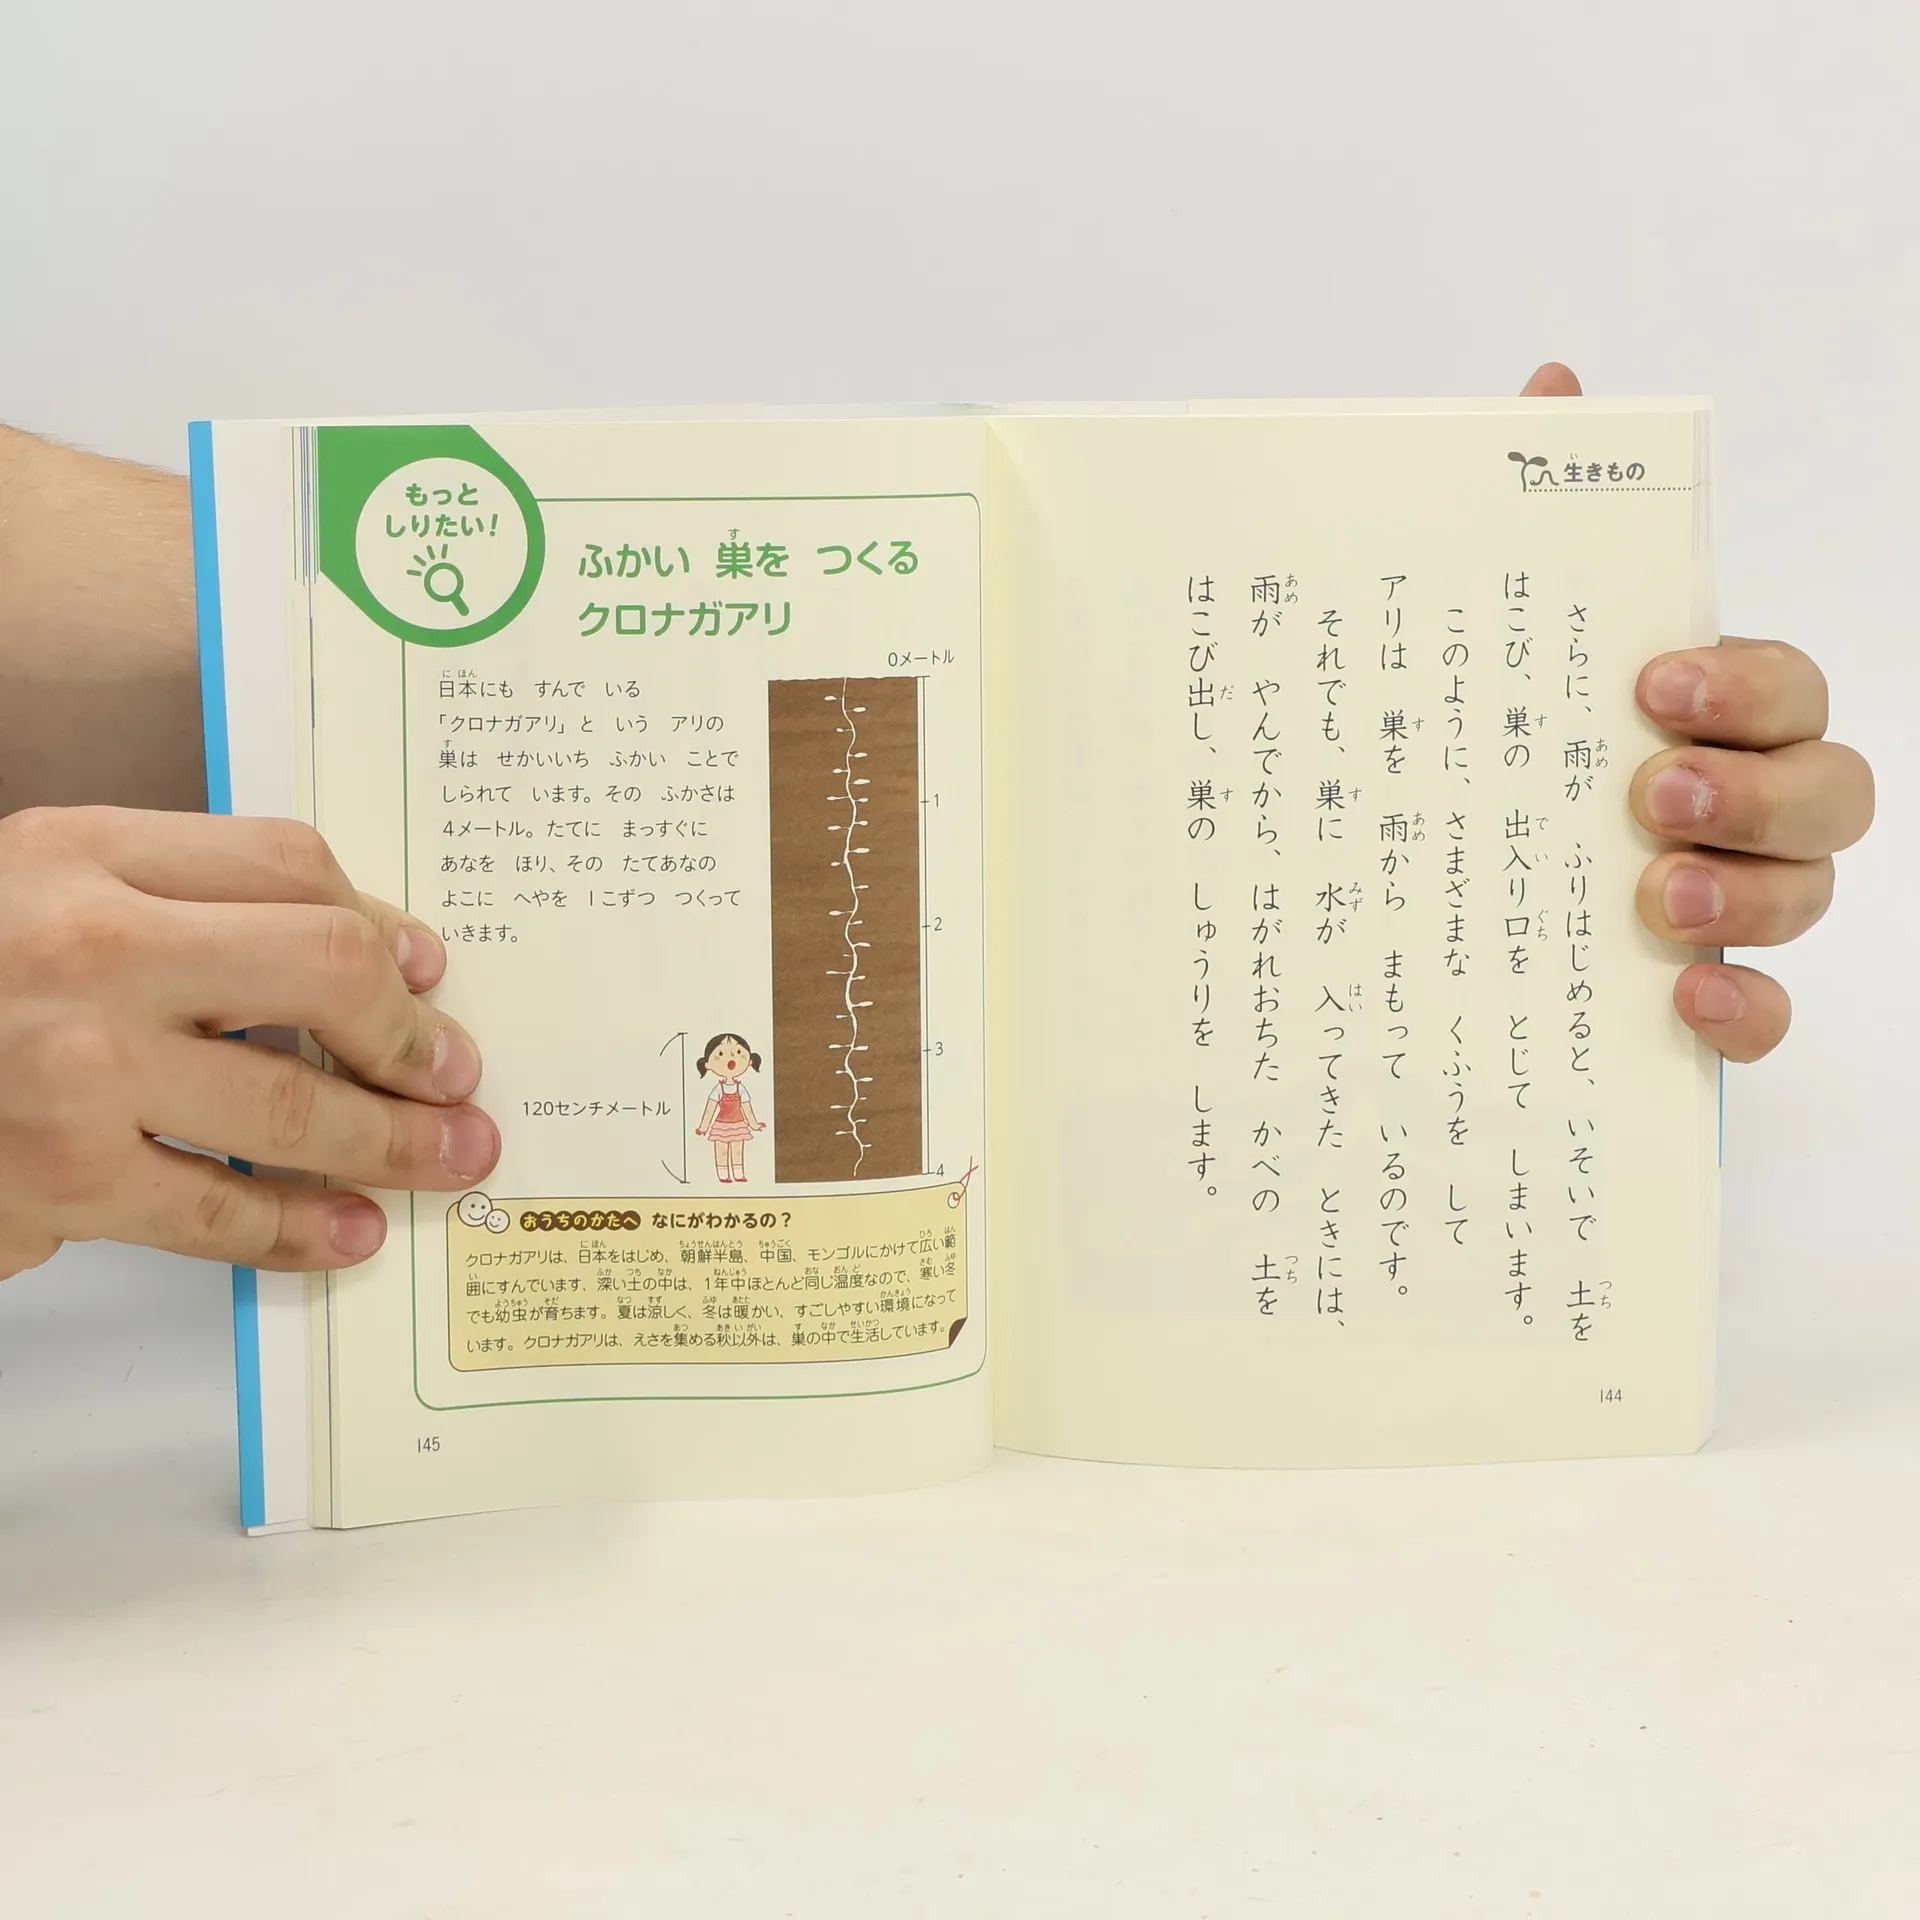 生きもの
さらに、雨が ふりはじめると、いそいで 土を
はこび、巣の 出入り口を とじて しまいます。
このように、さまざまな くふうを して
アリは 巣を 雨から まもって いるのです。
それでも、巣に 水が 入ってきた ときには、
雨が やんでから、はがれおちた かべの 土を
はこび出し、巣の しゅうりを します。
144
もっと
しりたい!
ふかい 巣を つくる
クロナガアリ
日本にも すんで いる
「クロナガアリ」と いう アリの
巣は せかいいち ふかい ことで
しられて います。その ふかさは
4メートル。たてに まっすぐに
あなを ほり、その たてあなの
よこに へやを 1こずつ つくって
いきます。
0メートル
1
2
3
4
120センチメートル
おうちのかたへ なにがわかるの?
クロナガアリは、日本をはじめ、朝鮮半島、中国、モンゴルにかけて広い範
囲にすんでいます。深い土の中は、1年中ほとんど同じ温度なので、寒い冬
でも幼虫が育ちます。夏は涼しく、冬は暖かい、すごしやすい環境になって
います。クロナガアリは、えさを集める秋以外は、巣の中で生活しています。
145